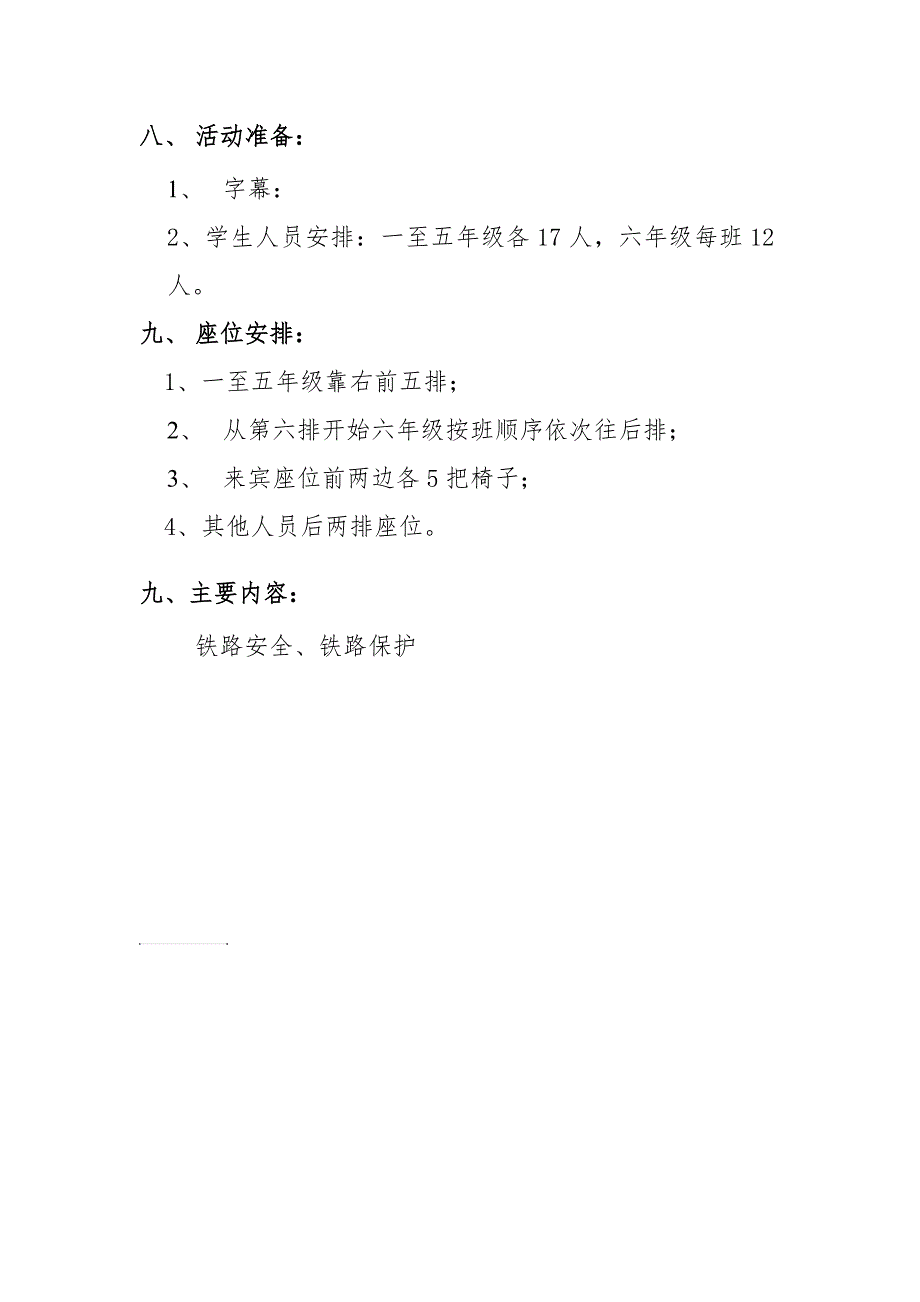 八、 活动准备：
1、 字幕：
2、学生人员安排：一至五年级各17人，六年级每班12
人。
九、 座位安排：
1、一至五年级靠右前五排；
2、 从第六排开始六年级按班顺序依次往后排；
3、 来宾座位前两边各5把椅子；
4、其他人员后两排座位。
九、主要内容：
铁路安全、铁路保护